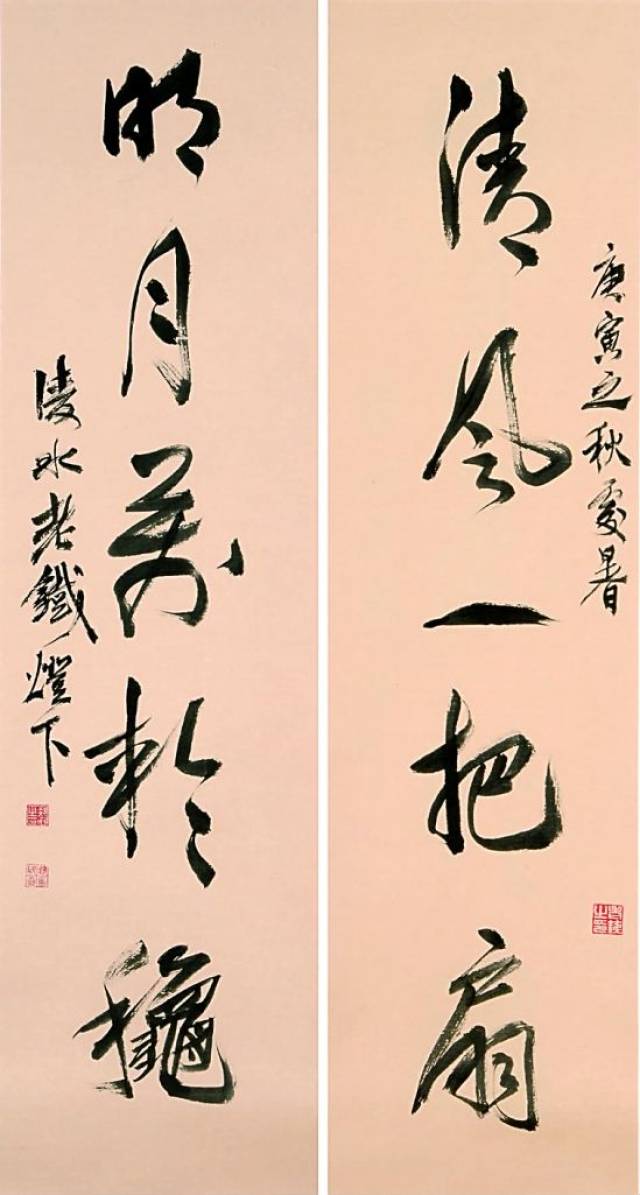 清風一把扇
庚寅之秋處暑
明月萬松龝
陵水老鐵燈下